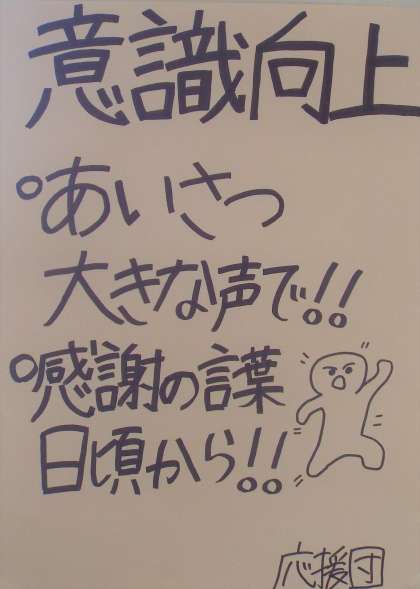 意識向上
○あいさつ
大きな声で!!
○感謝の言葉
日頃から!!
応援団